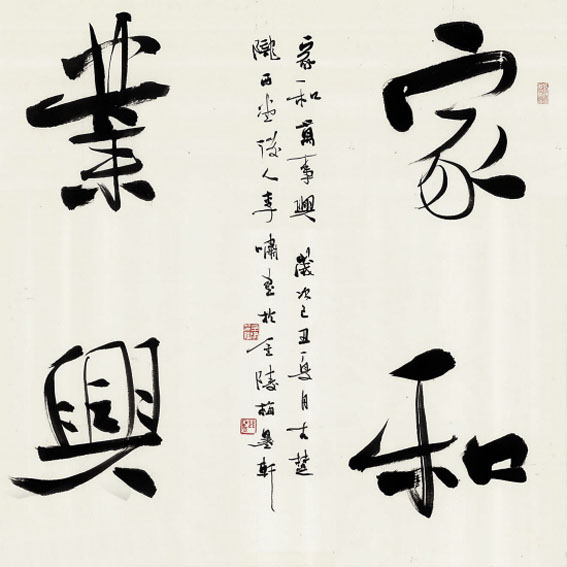 家和
家和萬事興 歲次己丑夏月古楚
隴西堂後人李嘯書於金陵墨軒
業興